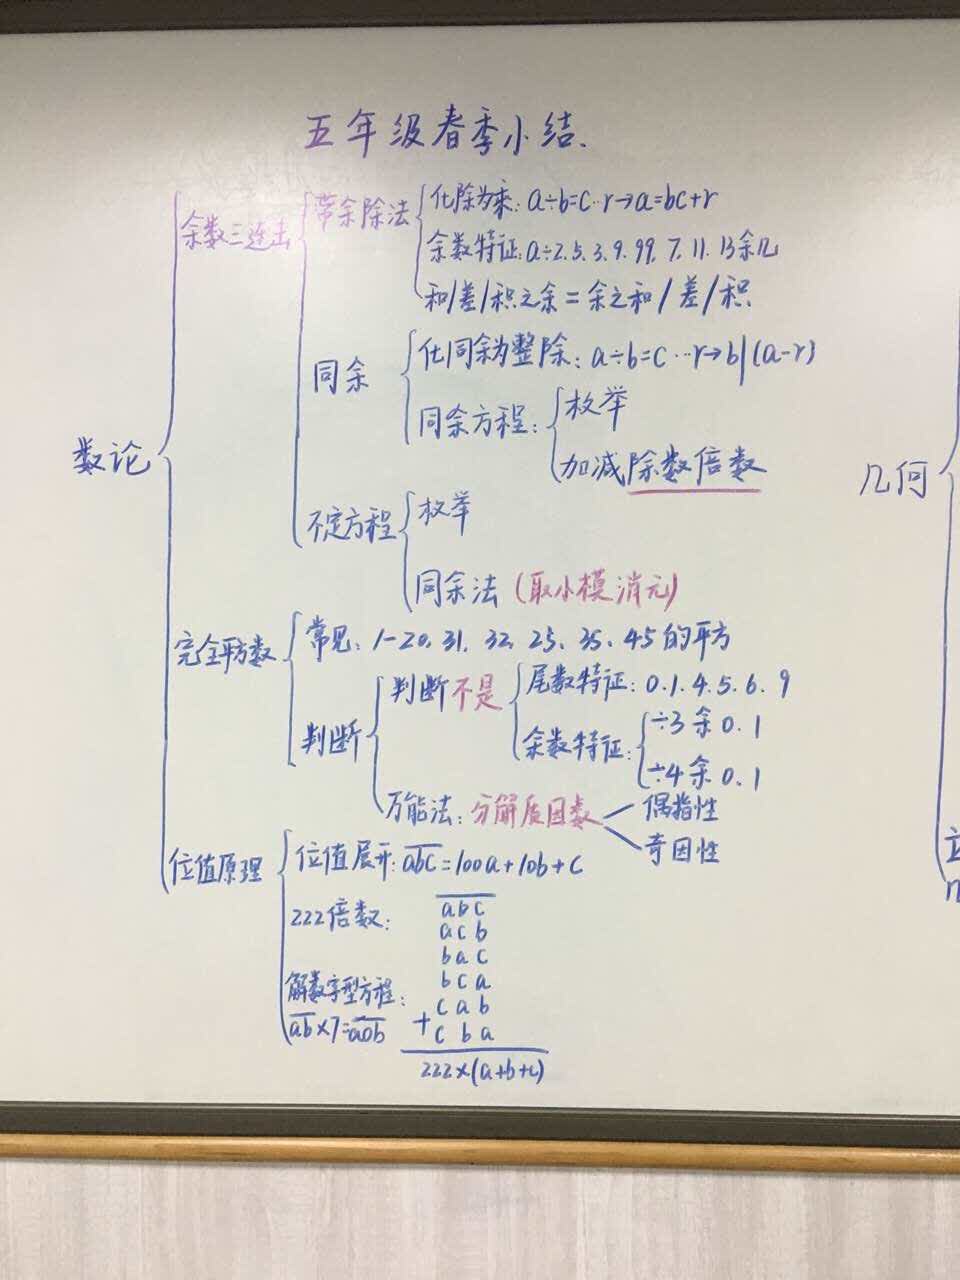 五年级春季小结.
数论
余数三连击
带余除法
化除为乘: a÷b=c…r→a=bc+r
余数特征: a÷2.5.3.9.99.7.11.13余几
和/差/积之余=余之和/差/积
同余
化同余为整除: a÷b=c…r→b|(a-r)
同余方程:
枚举
加减除数倍数
不定方程
枚举
同余法 (取小模消元)
完全平方数
常见: 1-20, 31, 32, 25, 35, 45的平方
判断
判断不是
尾数特征: 0.1.4.5.6.9
余数特征:
÷3余0.1
÷4余0.1
万能法: 分解质因数
偶指性
奇因性
位值原理
位值展开: abc=100a+10b+c
222倍数:
abc
acb
bac
bca
cab
+cba
222×(a+b+c)
解数字型方程:
ab×7=a0b
几何